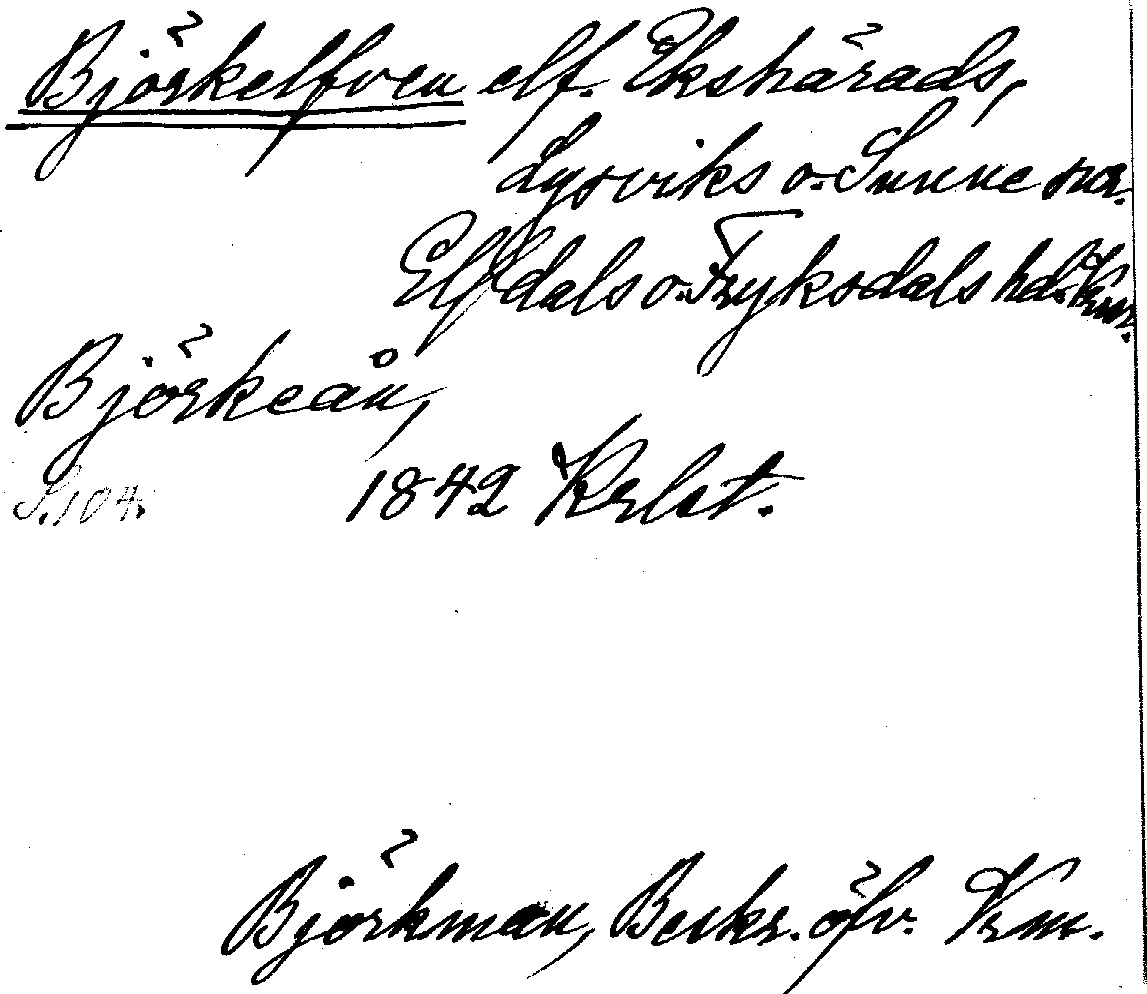 Björkelfven elf. Ekshärads,
Lysviks o. Sunne snr.
Elfdals o. Fryksdals hd. Vrm.
Björkeån,
S.104. 1842 Krlst.
Björkman, Beskr. öfv. Vrm.